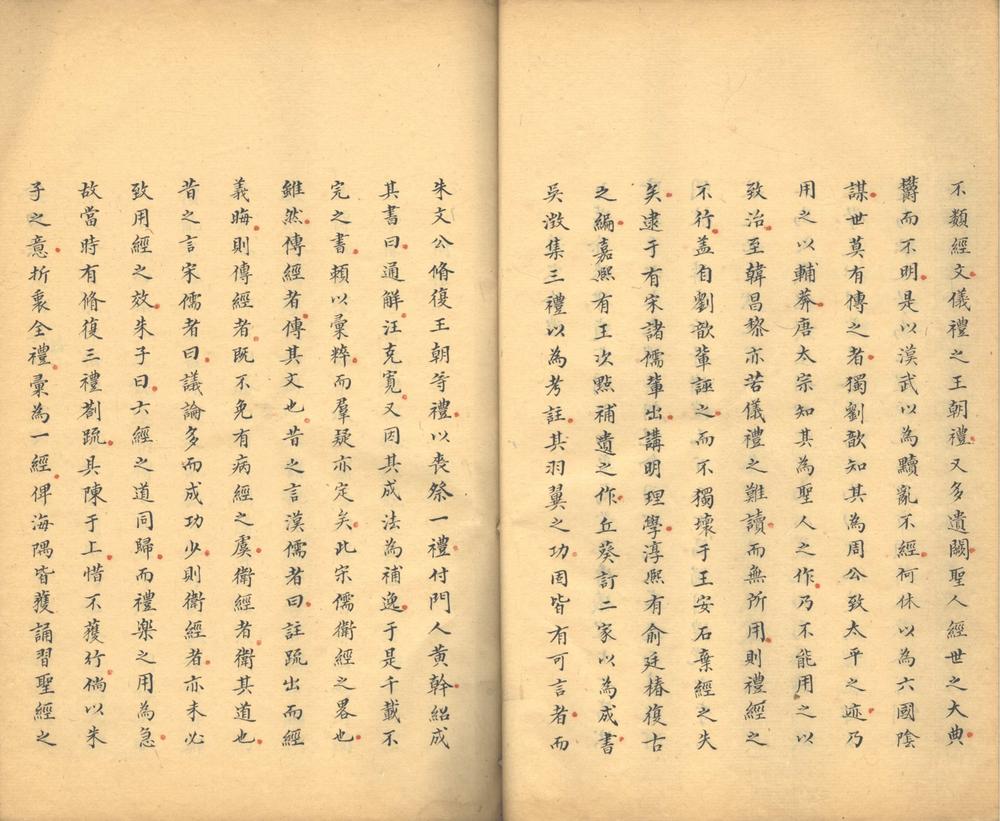 不類經文儀禮之王朝禮又多遺闕聖人經世之大典
欝而不明是以漢武以為黷亂不經何休以為六國陰
謀世莫有傳之者獨劉歆知其為周公致太平之迹乃
用之以輔莽唐太宗知其為聖人之作乃不能用之以
致治至韓昌黎亦若儀禮之難讀而無所用則禮經之
不行盖自劉歆軰誣之而不獨壞于王安石棄經之失
矣逮于有宋諸儒軰出講明理學淳熙有俞廷椿復古
之編嘉熙有王次點補遺之作丘葵訂二家以為成書
吳澂集三禮以為考註其羽翼之功固皆有可言者而
朱文公脩復王朝等禮以喪祭一禮付門人黃幹紹成
其書曰通解汪克寬又因其成法為補逸于是千載不
完之書頼以彙粹而羣疑亦定矣此宋儒衛經之畧也
雖然傳經者傳其文也昔之言漢儒者曰註䟽出而經
義晦則傳經者既不免有病經之虞衛經者衛其道也
昔之言宋儒者曰議論多而成功少則衛經者亦未必
致用經之效朱子曰六經之道同歸而禮樂之用為急
故當時有脩復三禮劄䟽具陳于上惜不獲行倘以朱
子之意折衷全禮彙為一經俾海隅皆獲誦習聖經之